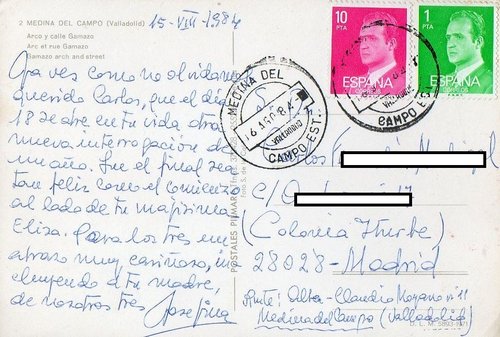 2 MEDINA DEL CAMPO (Valladolid)
Arco y calle Gamazo
Arc et rue Gamazo
Gamazo arch and street
15-VIII-1984
Ya ves como no olvidamos
querido Carlos, que el día
18 se abre en tu vida, otra
nueva interrogación de
un año. Que el final sea
tan feliz como el comienzo
al lado de tu majísima
Elisa. Para los tres un
abrazo muy cariñoso, in
cluyendo a tu madre,
de nosotros tres
Josefina
POSTALES PIPMARO
foto S. de
10
PTA
ESPAÑA
CORREOS
1
PTA
ESPAÑA
MEDINA DEL
16 AGO 84
VALLADOLID
CAMPO EST.
VALLADOLID
CAMPO EST.
C/
(Colonia Iturbe)
28028-Madrid
Rmte: Alba-Claudio Moyano nº 11
Medina del Campo (Valladolid)
D. L. M. 5893-1971